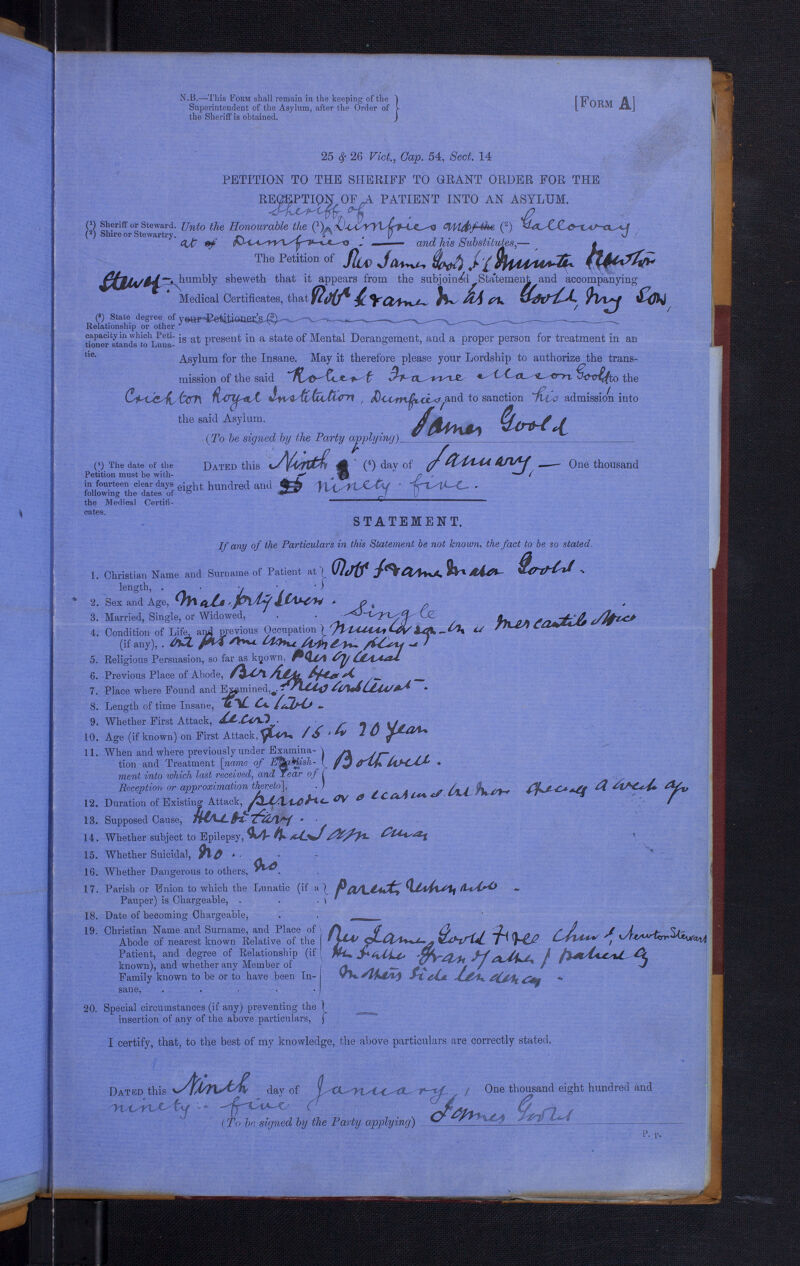 N.B.—This Form shall remain in the keeping of the
Superintendent of the Asylum, after the Order of
the Sheriff is obtained.
[Form A]
25 & 26 Vict., Cap. 54, Sect. 14
PETITION TO THE SHERIFF TO GRANT ORDER FOR THE
RECEPTION OF A PATIENT INTO AN ASYLUM.
Sheriff of
(1) Sheriff or Steward.
(2) Shire or Stewartry.
Unto the Honourable the (1) Dumfries and of the (2) Galloway
at Dumfries : — and his Substitutes,—
The Petition of Rev James Goold Minister Newton
Stewart humbly sheweth that it appears from the subjoined Statement and accompanying
Medical Certificates, that Robt Frame Mason Goold, my Son,
(3) State degree of
Relationship or other
capacity in which Peti-
tioner stands to Luna-
tic.
your Petitioner's (3)
is at present in a state of Mental Derangement, and a proper person for treatment in an
Asylum for the Insane. May it therefore please your Lordship to authorize the trans-
mission of the said Robert Frame Mason Goold to the
Crichton Royal Institution, Dumfries, and to sanction his admission into
the said Asylum.
(To be signed by the Party applying) James Goold
(4) The date of the
Petition must be with-
in fourteen clear days
following the dates of
the Medical Certifi-
cates.
Dated this Ninth (4) day of January, — One thousand
eight hundred and ninety-five.
STATEMENT.
If any of the Particulars in this Statement be not known, the fact to be so stated.
1. Christian Name and Surname of Patient at length, . Robt Frame Mason Goold.
2. Sex and Age, Male. forty seven.
3. Married, Single, or Widowed, Single
4. Condition of Life, and previous Occupation (if any), . in a mercantile office
5. Religious Persuasion, so far as known, Presbyterian
6. Previous Place of Abode, Birkenhead
7. Place where Found and Examined, Newton Stewart.
8. Length of time Insane,
9. Whether First Attack, Second.
10. Age (if known) on First Attack, 15 to 20 years
11. When and where previously under Examina-
tion and Treatment [name of Establish-
ment into which last received, and Year of
Reception or approximation thereto], Bothwell.
12. Duration of Existing Attack, periodic or occasional but more especially a week ago
13. Supposed Cause, Hereditary.
14. Whether subject to Epilepsy, aware
15. Whether Suicidal, No.
16. Whether Dangerous to others, No.
17. Parish or Union to which the Lunatic (if a
Pauper) is Chargeable, . Parents responsible
18. Date of becoming Chargeable, —
19. Christian Name and Surname, and Place of
Abode of nearest known Relative of the
Patient, and degree of Relationship (if
known), and whether any Member of
Family known to be or to have been In-
sane,
Rev James Goold Free Church, Newton Stewart
His Father Grandfather
Mothers side tendency
20. Special circumstances (if any) preventing the
insertion of any of the above particulars, —
I certify, that, to the best of my knowledge, the above particulars are correctly stated.
Dated this Ninth day of January, One thousand eight hundred and
ninety-five
(To be signed by the Party applying) James Goold